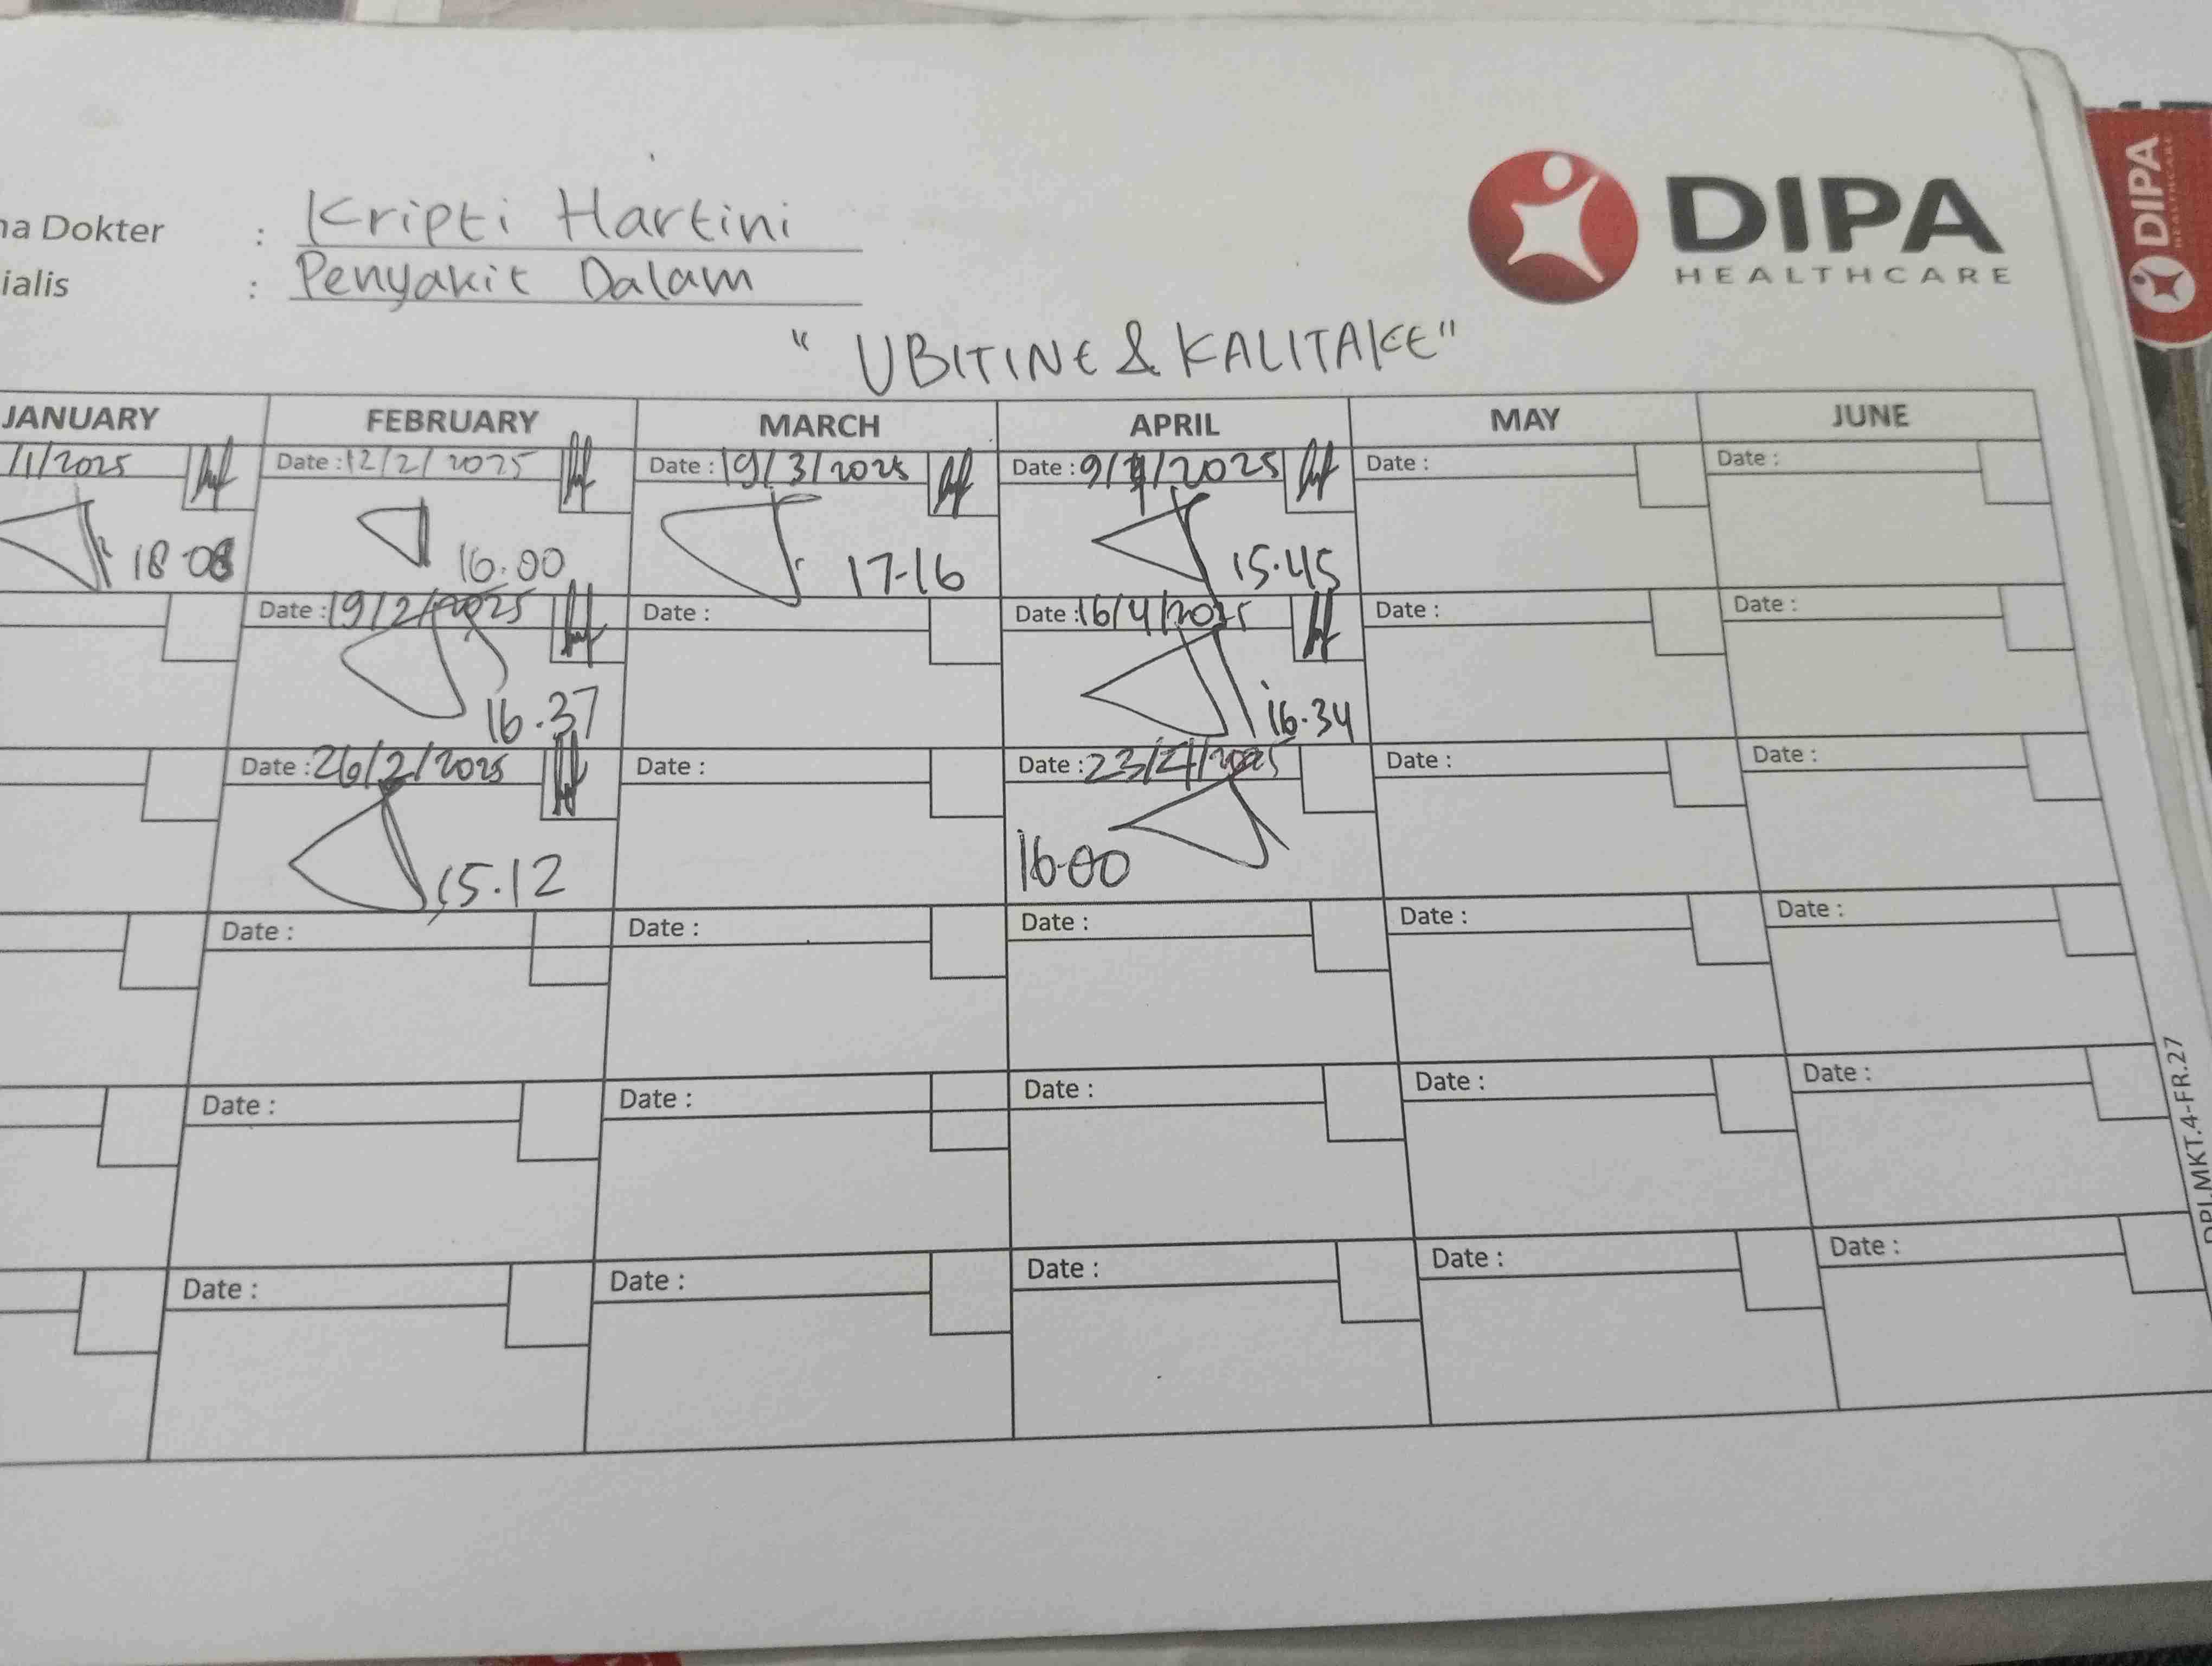 DIPA
HEALTHCARE
DIPA
HEALTHCARE
na Dokter : Kripti Hartini
ialis : Penyakit Dalam
"UBITINE & KALITAKE"
JANUARY FEBRUARY MARCH APRIL MAY JUNE
/1/2025 Date : 12/2/2025 Date : 19/3/2025 Date : 9/4/2025 Date : Date :
18.08 16.00 17-16 15.45
Date : 19/2/2025 Date : Date : 16/4/2025 Date : Date :
16.37 16.34
Date : 26/2/2025 Date : Date : 23/4/2025 Date : Date :
15.12 16.00
Date : Date : Date : Date : Date :
Date : Date : Date : Date : Date :
Date : Date : Date : Date : Date :
DPI.MKT.4-FR.27